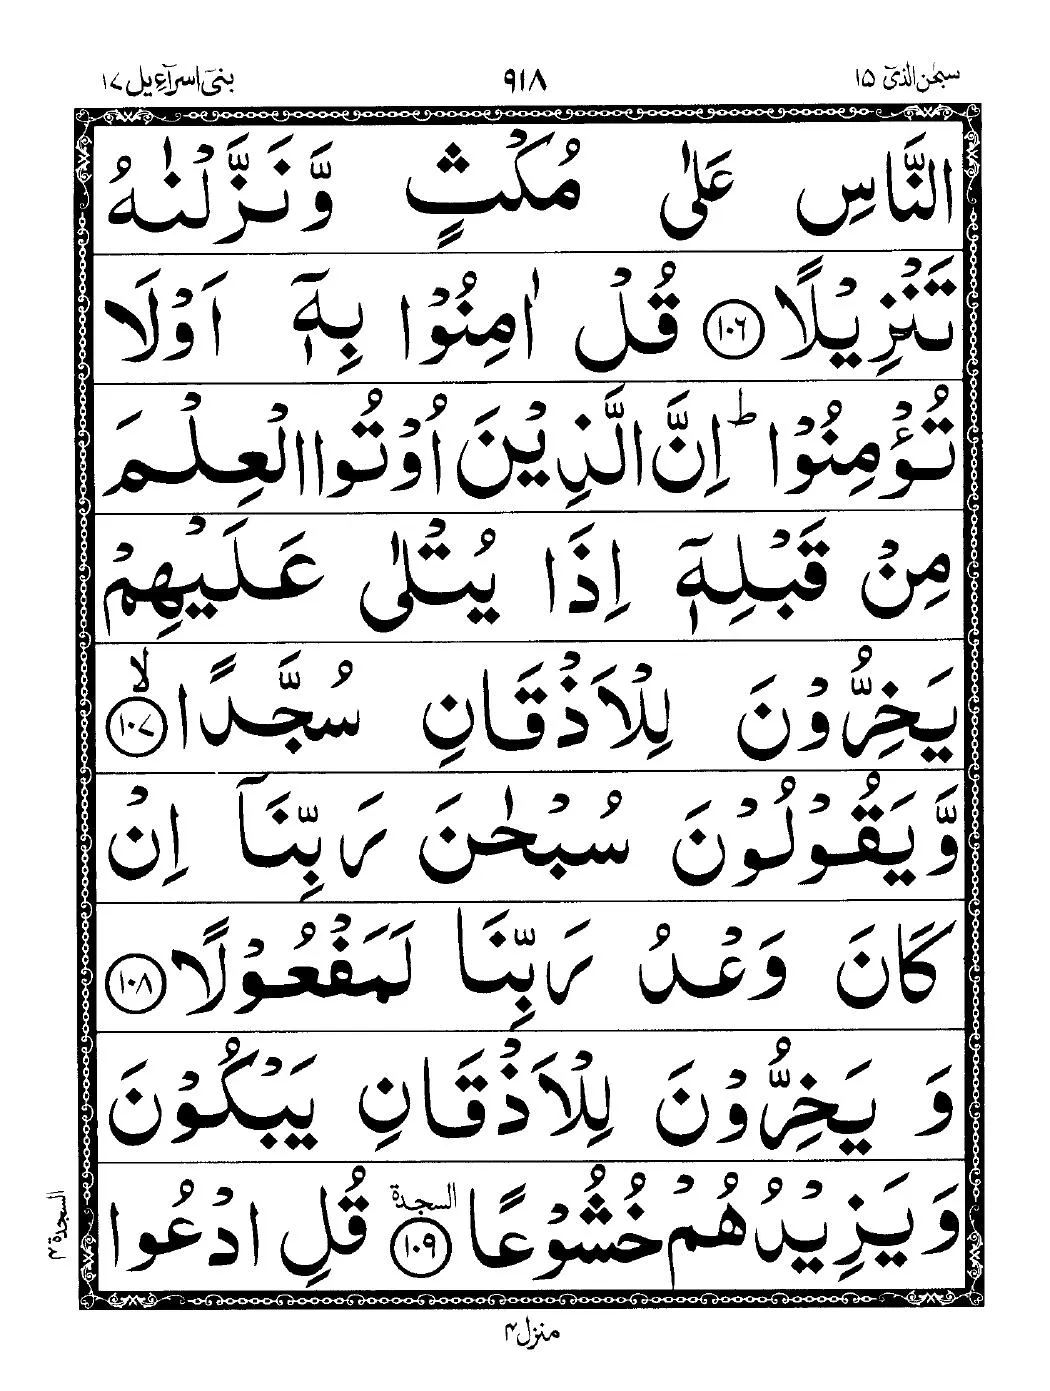 سبحٰن الذیٓ ١٥
٩١٨
بنیٓ اسرآءیل ١٧
النَّاسِ عَلٰى مُكْثٍ وَّنَزَّلْنٰهُ
تَنْزِيْلًا ﴿١٠٦﴾ قُلْ اٰمِنُوْا بِهٖۤ اَوْلَا
تُؤْمِنُوْا ؕ اِنَّ الَّذِيْنَ اُوْتُوا الْعِلْمَ
مِنْ قَبْلِهٖۤ اِذَا يُتْلٰى عَلَيْهِمْ
يَخِرُّوْنَ لِلْاَذْقَانِ سُجَّدًا ﴿١٠٧﴾ ۙ
وَّيَقُوْلُوْنَ سُبْحٰنَ رَبِّنَاۤ اِنْ
كَانَ وَعْدُ رَبِّنَا لَمَفْعُوْلًا ﴿١٠٨﴾
وَ يَخِرُّوْنَ لِلْاَذْقَانِ يَبْكُوْنَ
وَيَزِيْدُهُمْ خُشُوْعًا ﴿١٠٩﴾ السجدة قُلِ ادْعُوا
السجدة ۴
منزل ۴